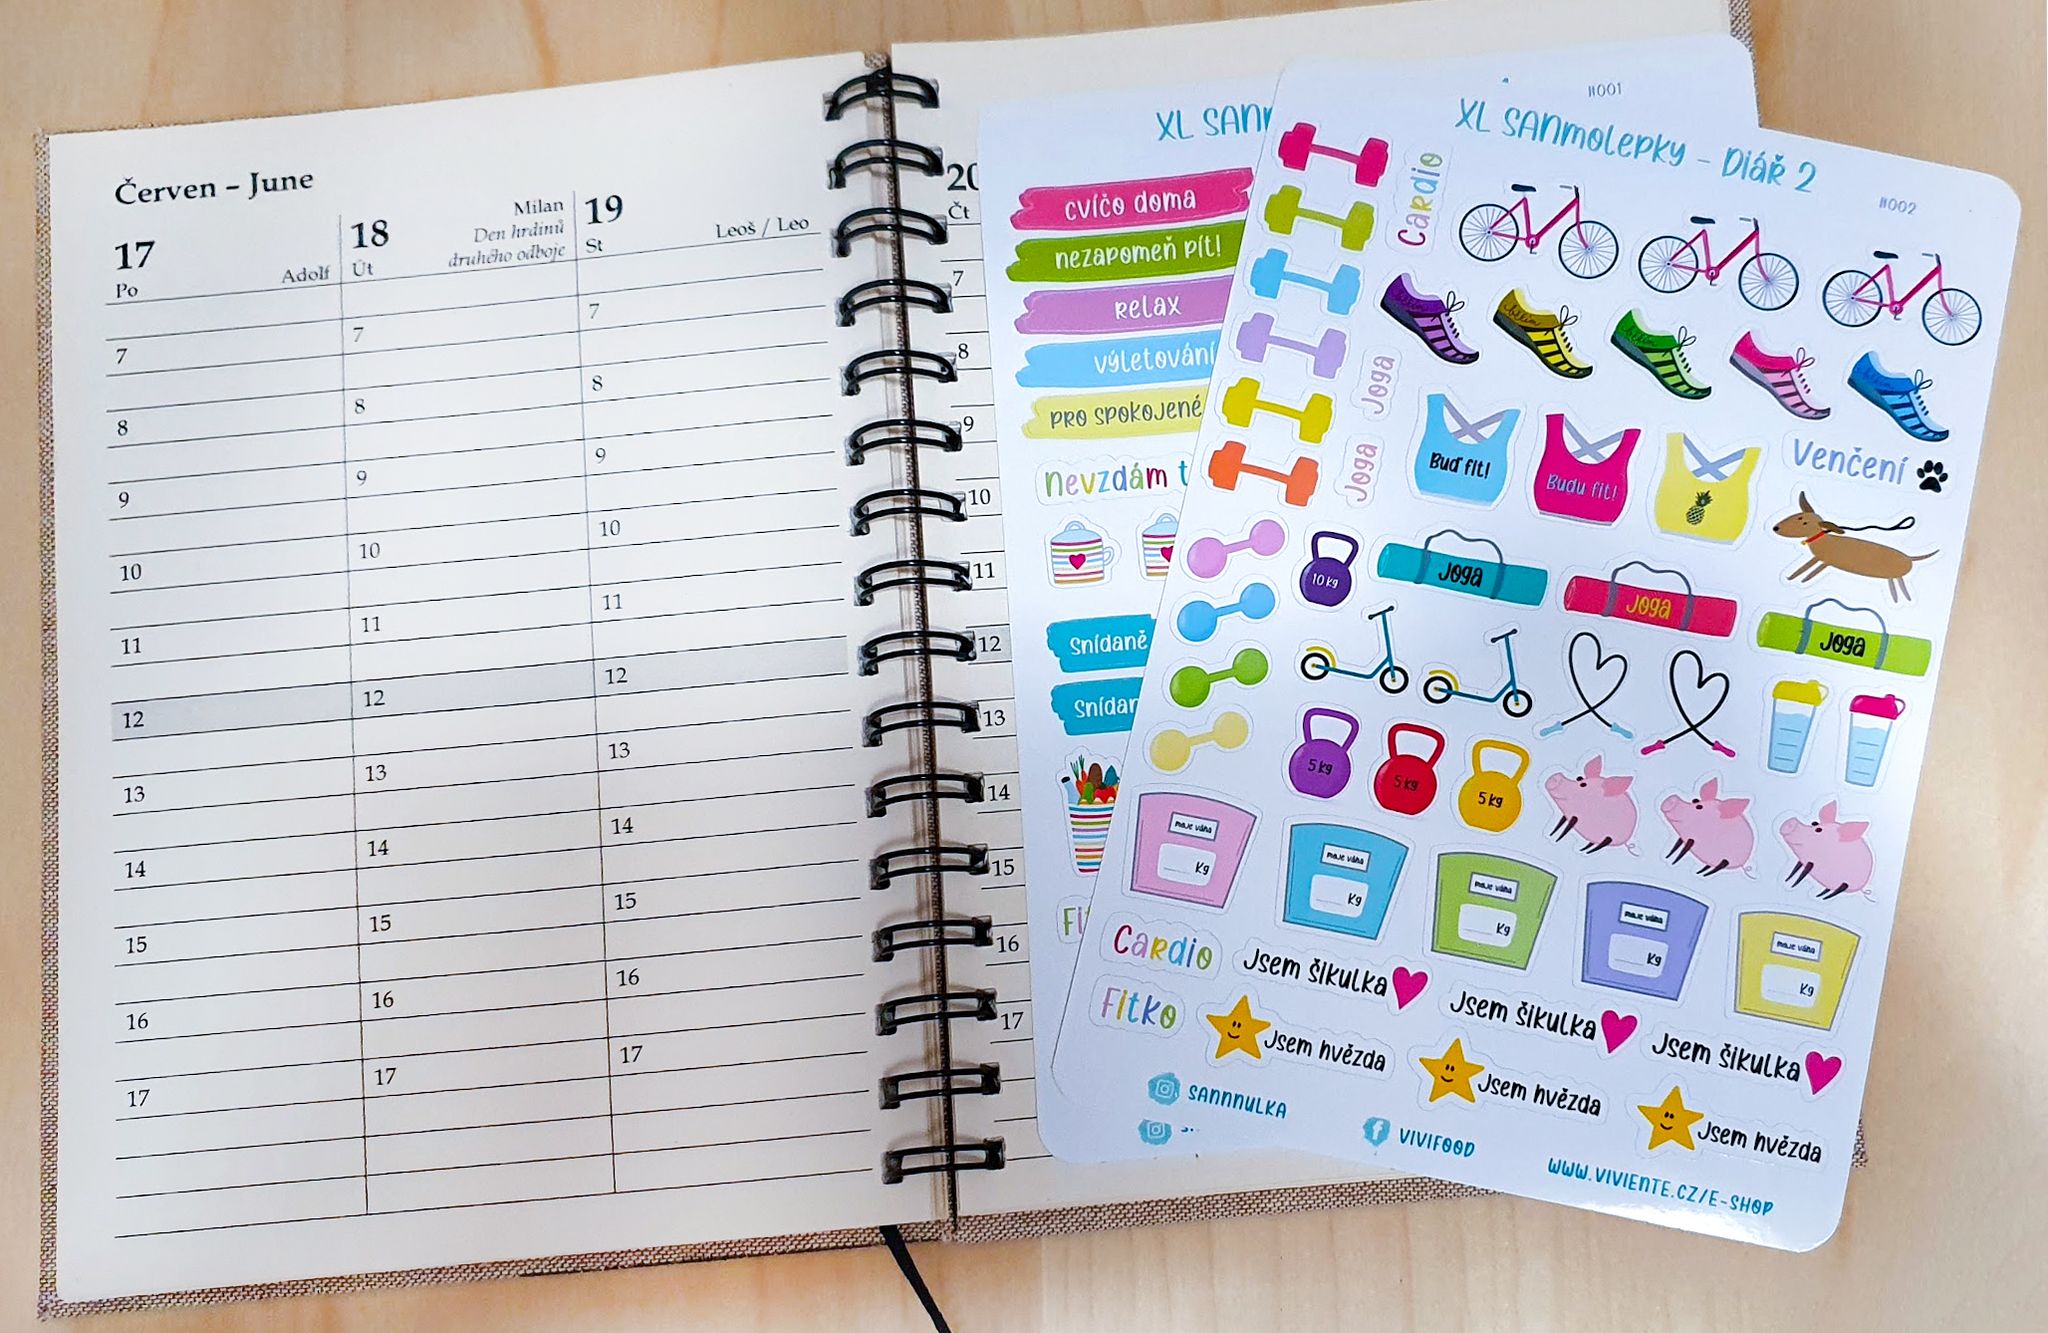 Červen – June
17
Po
Adolf
18
Út
Milan
Den hrdinů
druhého odboje
19
St
Leoš / Leo
7
8
9
10
11
12
13
14
15
16
17
7
8
9
10
11
12
13
14
15
16
17
7
8
9
10
11
12
13
14
15
16
17
20
Čt
7
8
9
10
11
12
13
14
15
16
17
XL SANM
#001
cvičo doma
nezapomeň pít!
relax
výletování
PRO SPOKOJENÉ
nevzdám t
Snídaně
Snídan
Fi
XL SANmolepky - Diář 2
#002
Cardio
Joga
Joga
Buď fit!
Budu fit!
Venčení
10 Kg
Joga
Joga
Joga
5 Kg
5 Kg
5 Kg
moje váha
Kg
moje váha
Kg
moje váha
Kg
moje váha
Kg
moje váha
Kg
Cardio
Fitko
Jsem šikulka
Jsem šikulka
Jsem šikulka
Jsem hvězda
Jsem hvězda
Jsem hvězda
SANNNULKA
VIVIFOOD
WWW.VIVIENTE.CZ/E-SHOP